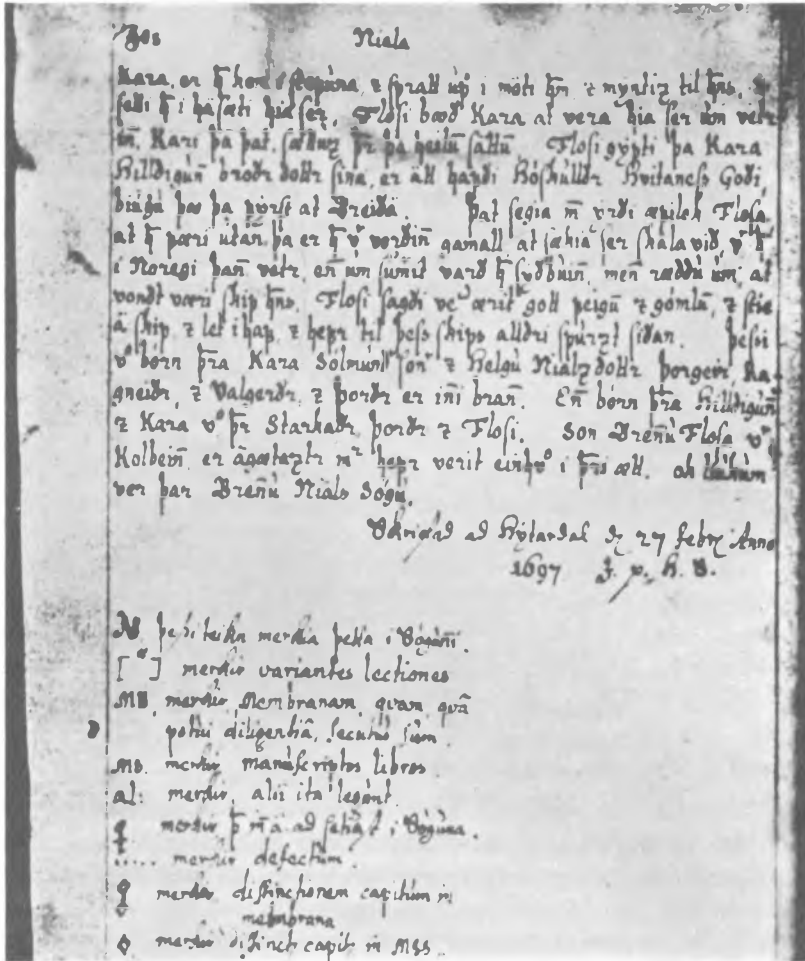 Niala
Kara, er h̄ kom i stopuna, ꝛ spratt up i moti hm̄ ꝛ myntiz til hn̄s,
setti h̄ i hasæti hia sez. Flosi bauð Kara at vera hia ser um vetr
in̄, Kari þa þat. sættuz þr þa heilū sattū. Flosi gypti þa Kara
Hilldigun̄ broðr dottr sina, er átt hapði Hóskulldr Hvitaness Goði,
biuggu þau þa pyrst at Breiðá. Þat segia m̄ vrði æpilok Flosa
at h̄ pæri utan̄ þa er h̄ vͬ vorðin̄ gamall at sækia ser skála við, vͬ h̄
i Noregi þan̄ vetr, en̄ um sumit varð h̄ síðbuin̄, men̄ ræddu um, at
vondt væri skip hn̄s. Flosi sagði veͬ ærit gott peigū ꝛ gómlū, ꝛ stie
á skip, ꝛ let i hap, ꝛ hepr til þess skips alldri spurzt siðan. Þessi
vͬ börn þra Kara Sölmund son̄ ꝛ Helgu Nialz dottr Þorgerðr Ra-
gneiðr, ꝛ Valgerðr, ꝛ Þorðr er in̄i bran̄. En̄ börn þra Hilldigun̄
ꝛ Kara vͬ þr Starkaðr Þorðr ꝛ Flosi. Son Brennu Flosa vͬ
Kolbein̄ er ágætaztr mͬ hepr verit einhvͬ i þri ætt. ok lukum
ver þar Brennu Nials Sógu.
Skrifad ad Hÿtardal dz 27 febrz Anno
1697 J. þ. h. S.
þetti teikn merkia petta i Sógun̄i.
[ ] merkir variantes lectiones
MB. merkir Membranam, quam quā
potui diligentiā, secutus sum.
MS. merkir manuscriptos libros.
al: merkir, alii ita legunt.
merkir þ m̄ á ad setia t i Sóguna.
..... merkir defectum.
merkir distinctionem capitum in
membrana
merkir distinct capit in MSS.